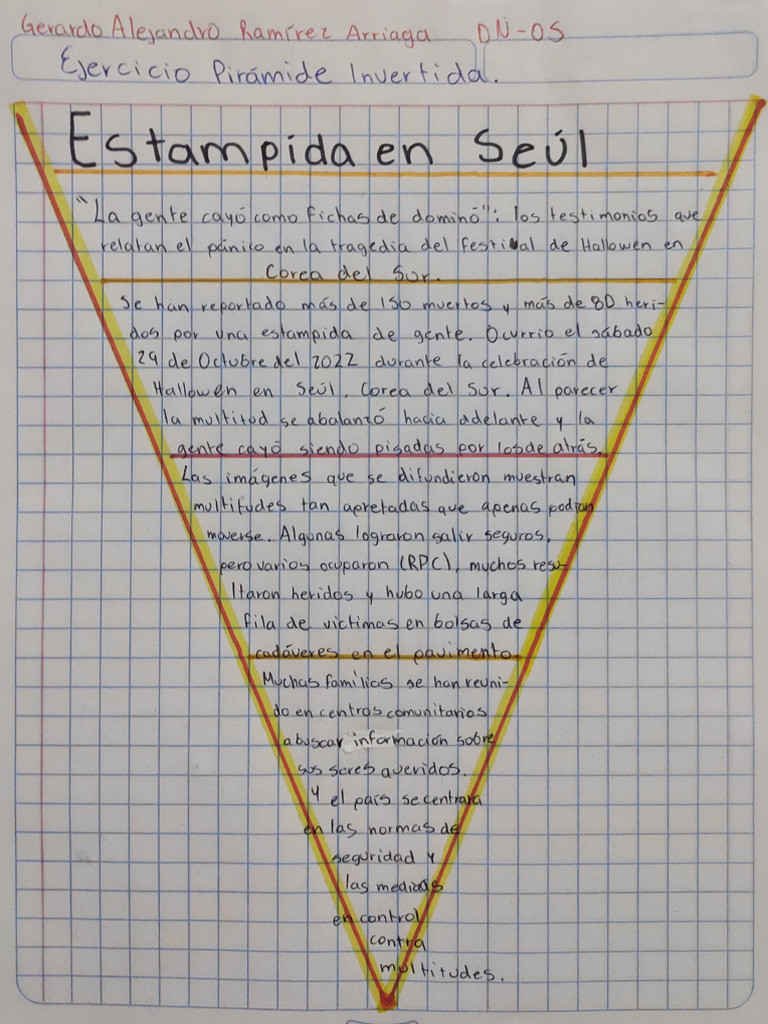 Gerardo Alejandro Ramírez Arriaga DN-05
Ejercicio Pirámide Invertida.
Estampida en Seúl
"La gente cayó como fichas de dominó": los testimonios que
relatan el pánico en la tragedia del festival de Hallowen en
Corea del Sur.
Se han reportado más de 150 muertos y más de 80 heri-
dos por una estampida de gente. Ocurrio el sábado
29 de Octubre del 2022 durante la celebración de
Hallowen en Seúl, Corea del Sur. Al parecer
la multitud se abalanzó hacia adelante y la
gente cayó siendo pisadas por los de atrás.
Las imágenes que se difundieron muestran
multitudes tan apretadas que apenas podían
moverse. Algunas lograron salir seguros,
pero varios ocuparon (RPC), muchos resu-
ltaron heridos y hubo una larga
fila de victimas en bolsas de
cadáveres en el pavimento.
Muchas familias se han reuni-
do en centros comunitarios
a buscar información sobre
sus seres queridos.
Y el país se centrara
en las normas de
seguridad y
las medidas
en control
contra
multitudes.